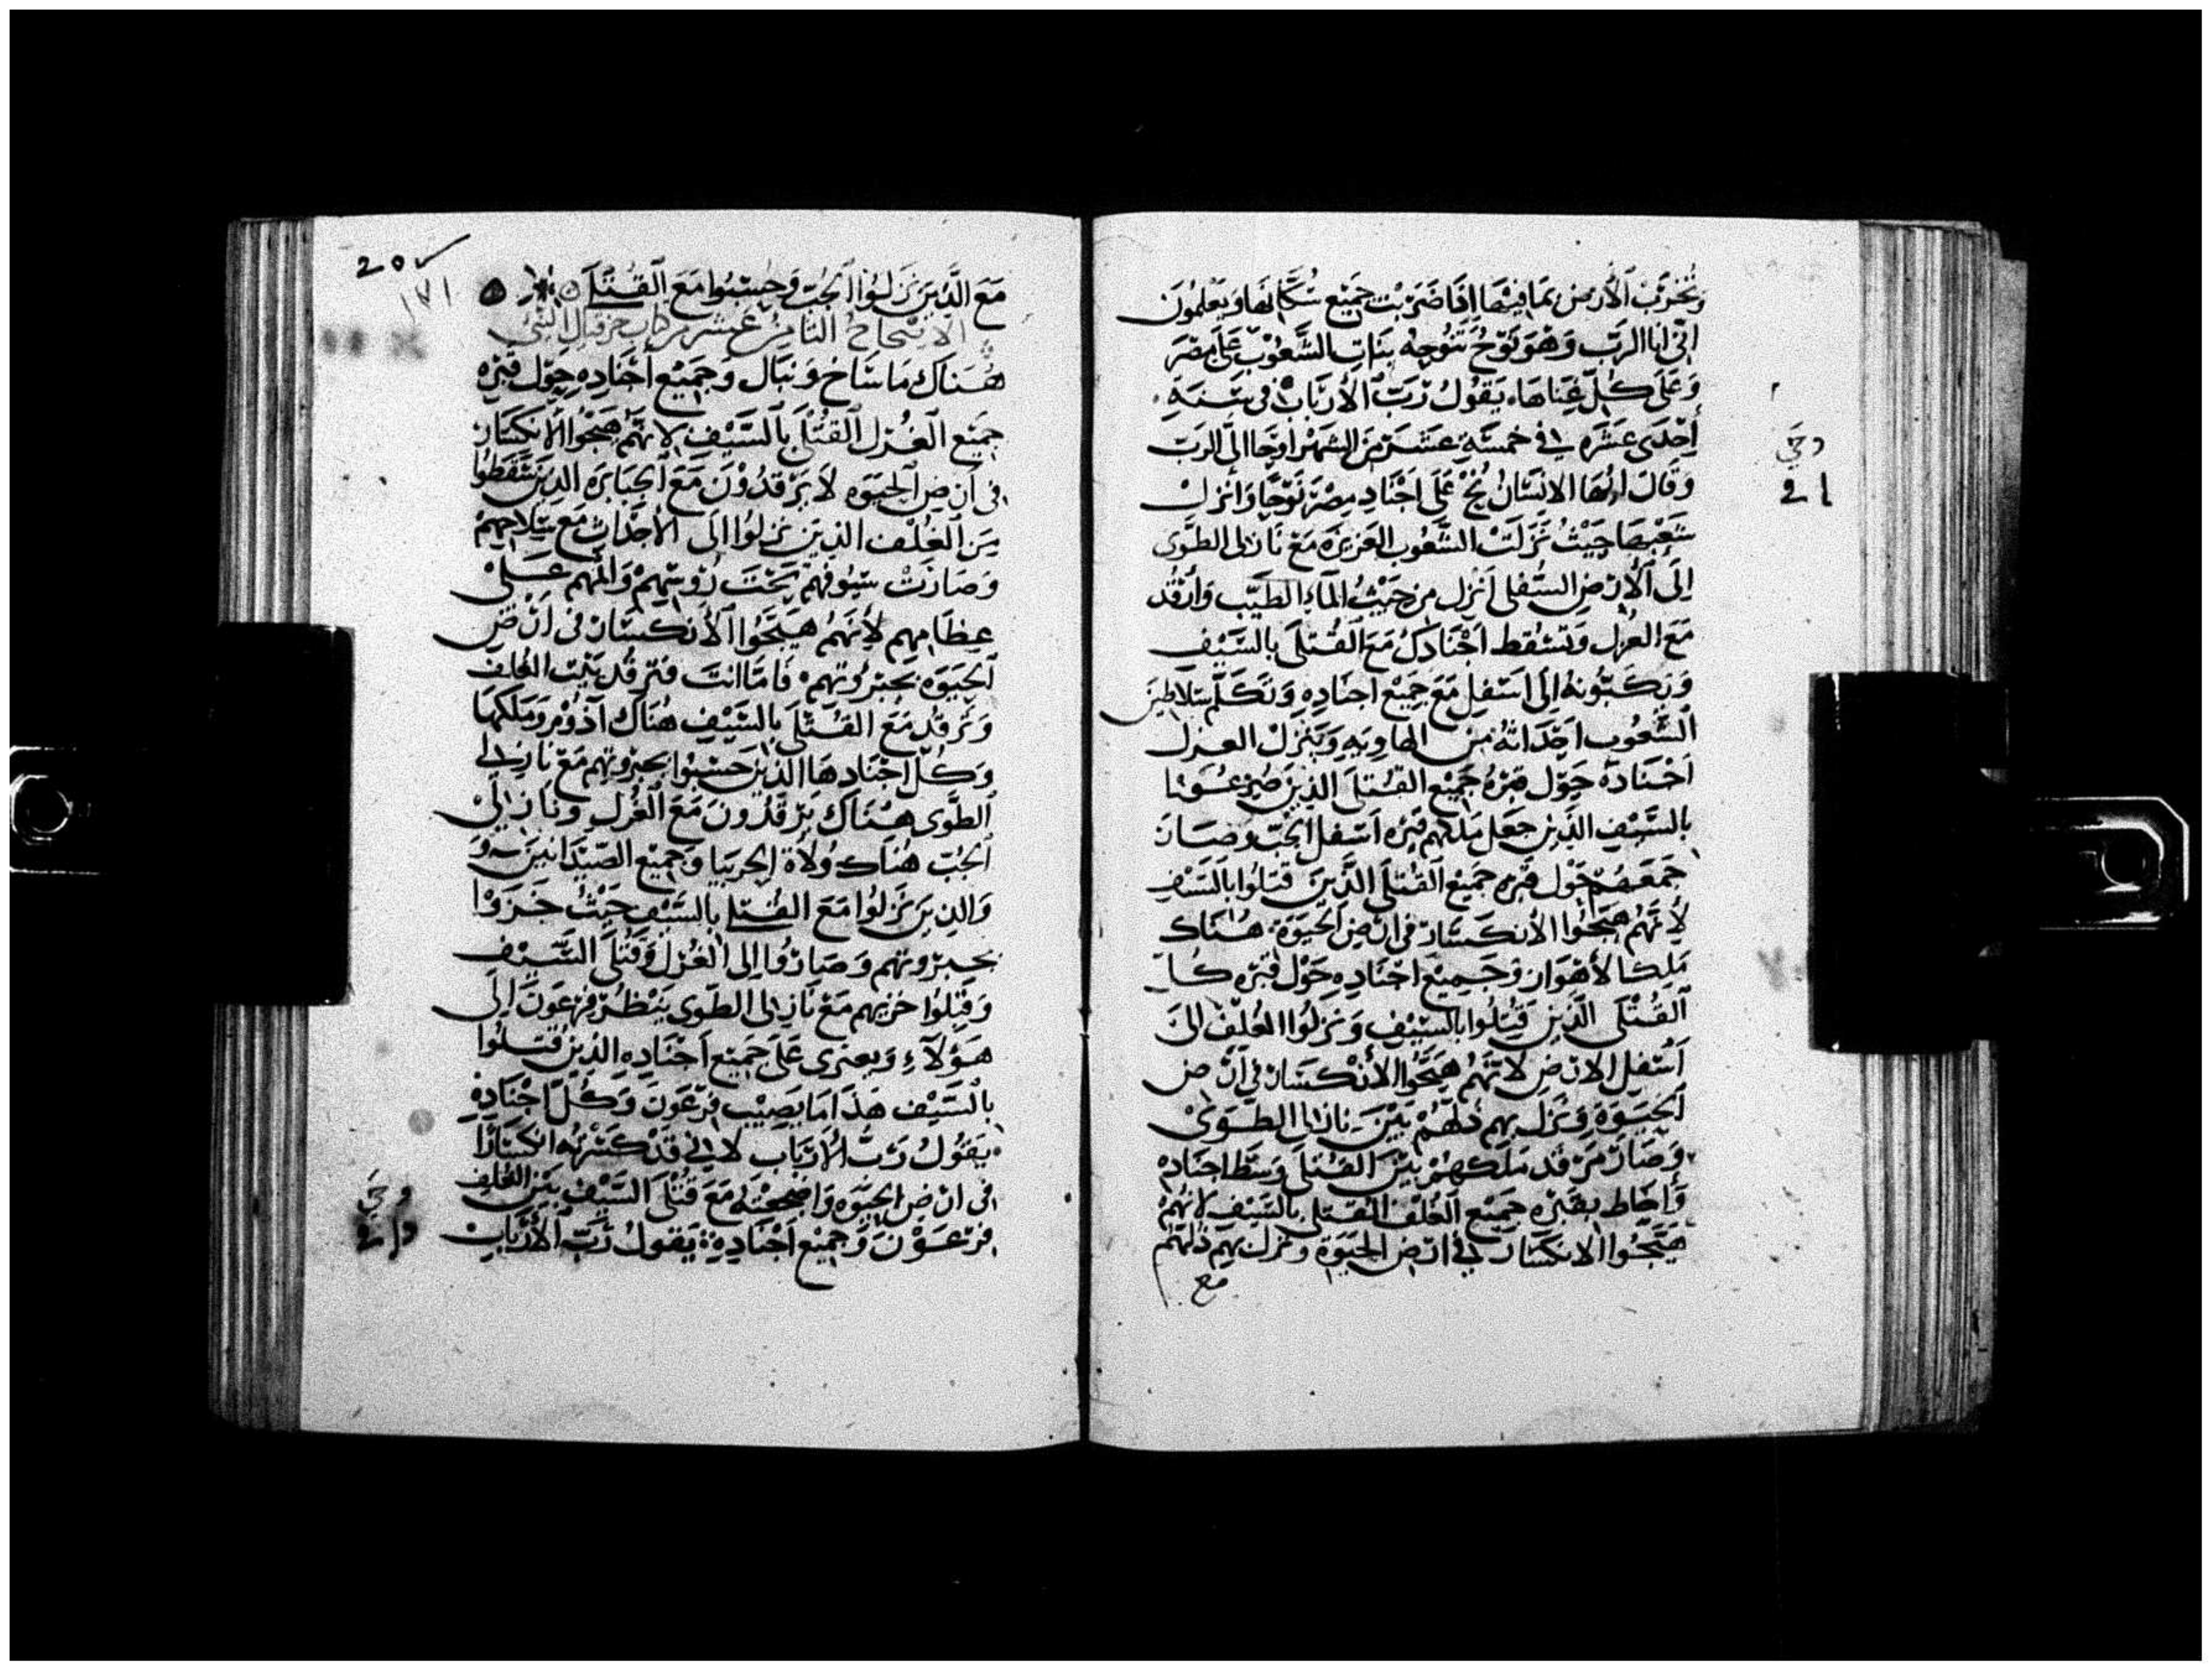 وتخرب الأرض بما فيها اذا ضربت جميع سكانها ويعلمون
اني انا الرب وهو نَوْحٌ تَنُوحه بنات الشعوب على مصر
وعلى كل غناها، يقول رب الأرباب في سنة
أحدى عشره في خمسة عشر من الشهر اوحا الى الرب
وقال ايها الانسان نُحْ على اجناد مصر نَوْحًا وانزل
شعبها حيث نزلت الشعوب العزيزه مع نازلى الطوى
إلى الأرض السفلى انزل من حيث الماء الطيب وارقد
مع العزل وتسقط اجنادك مع القتلى بالسيف
ويكبونه إلى اسفل مع جميع اجناده وتكلم سلاطين
الشعوب اجداثه من الهاويه وينزل العزل
اجناده حول قبره جميع القتلى الذين صرعوا
بالسيف الذين جعل ملكهم قبره اسفل الجب وصار
جمعهم حول قبره جميع القتلى الذين قتلوا بالسيف
لأنهم هيجوا الانكسار في ارض الحيوة، هناك
ملكا لأهوار وجميع اجناده حول قبره كل
القتلى الذين قتلوا بالسيف ونزلوا الغلف الى
اسفل الارض لانهم هيجوا الأنكسار في ارض
الحيوة ونزل بهم ذلهم بين نازلى الطوى
وصار مرقد ملكهم بين القتلى وسط اجناده
وأحاط بقبره جميع الغلف القتلى بالسيف لانهم
هيجوا الانكسار في ارض الحيوة ونزل بهم ذلهم
مع
وحي
21
205
١٧١
مع الذين نزلوا الجب وحسبوا مع القتلى
الاصحاح الثامن عشر من كتاب حزقيال النبي
هناك ماشاخ وتبال وجميع أجناده حول قبره
جميع العزل القتلى بالسيف لانهم هيجوا الأنكسار
في ارض الحيوه لا يرقدون مع الجبابره الذين سقطوا
من الغلف الذين نزلوا الى الأجداث مع سلاحهم
وصارت سيوفهم تحت رؤسهم والمهم على
عظامهم لأنهم هيجوا الأنكسار في ارض
الحيوه بجبروتهم، فاما انت فترقد بين الغلف
وترقد مع القتلى بالسيف هناك آذوم وملكها
وكل اجنادها الذين حسبوا بجبروتهم مع نازلي
الطوى هناك يرقدون مع العزل ونازلى
الجب هناك ولاة الجربيا وجميع الصيدانيين و
والذين نزلوا مع القتلى بالسيف حيث خزوا
بجبروتهم وصاروا إلى العزل وقتلى السيف
وقبلوا خزيهم مع نازلى الطوى ينظر فرعون إلى
هؤلآء ويعزى على جميع اجناده الذين قتلوا
بالسيف هذا ما يصيب فرعون وكل اجناده
يقول رب الأرباب لاني قد كسرته انكسارًا
في ارض الحيوه واضجعته مع قتلى السيف بين الغلف
فرعون وجميع اجناده: يقول رب الأرباب
وحي